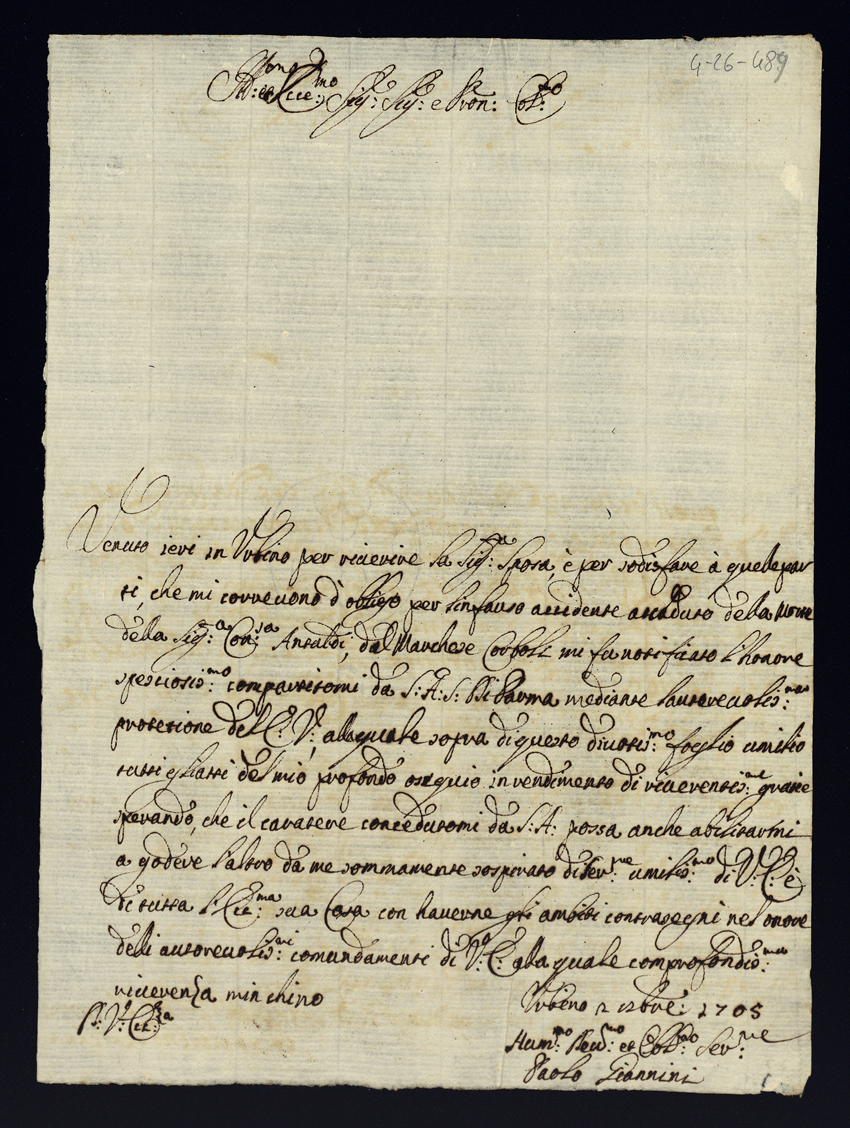 4-26-489
Ill:mo et Ecc:mo Sig: Sig: e Pron: Col:mo
Venuto ieri in Urbino per riverire la Sig:ra Sposa, è per sodisfare à quelle par
ti, che mi correvono d'obligo per l'infausto accidente accaduto della Morte
della Sig:ra Con:sa Antaldi, dal Marchese Corboli mi fu notificato l'honore
speciosis:mo compartitomi da S: A: S: di Parma mediante l'autorevolis:ma
protetione dell'E: V:, alla quale sopra di questo divotis:mo foglio umilio
tutti gli atti del mio profondo osequio in rendimento di riverentis:me gratie
sperando, che il caratere concedutomi da S: A: possa anche abilitarmi
a godere l'altro da me sommamente sospirato di Ser:re umilis:mo di V: E: è
di tutta l'Ecc:ma sua Casa con haverne gli ambiti contrasegni nel onore
delli autorevolis:mi comandamenti di V: E: alla quale con profondis:ma
riverenza m'inchino
Urbino 2 1705
D: V: Ecc:za
Hum:mo Dev:mo et Obl:mo Ser:re
Paolo Giannini